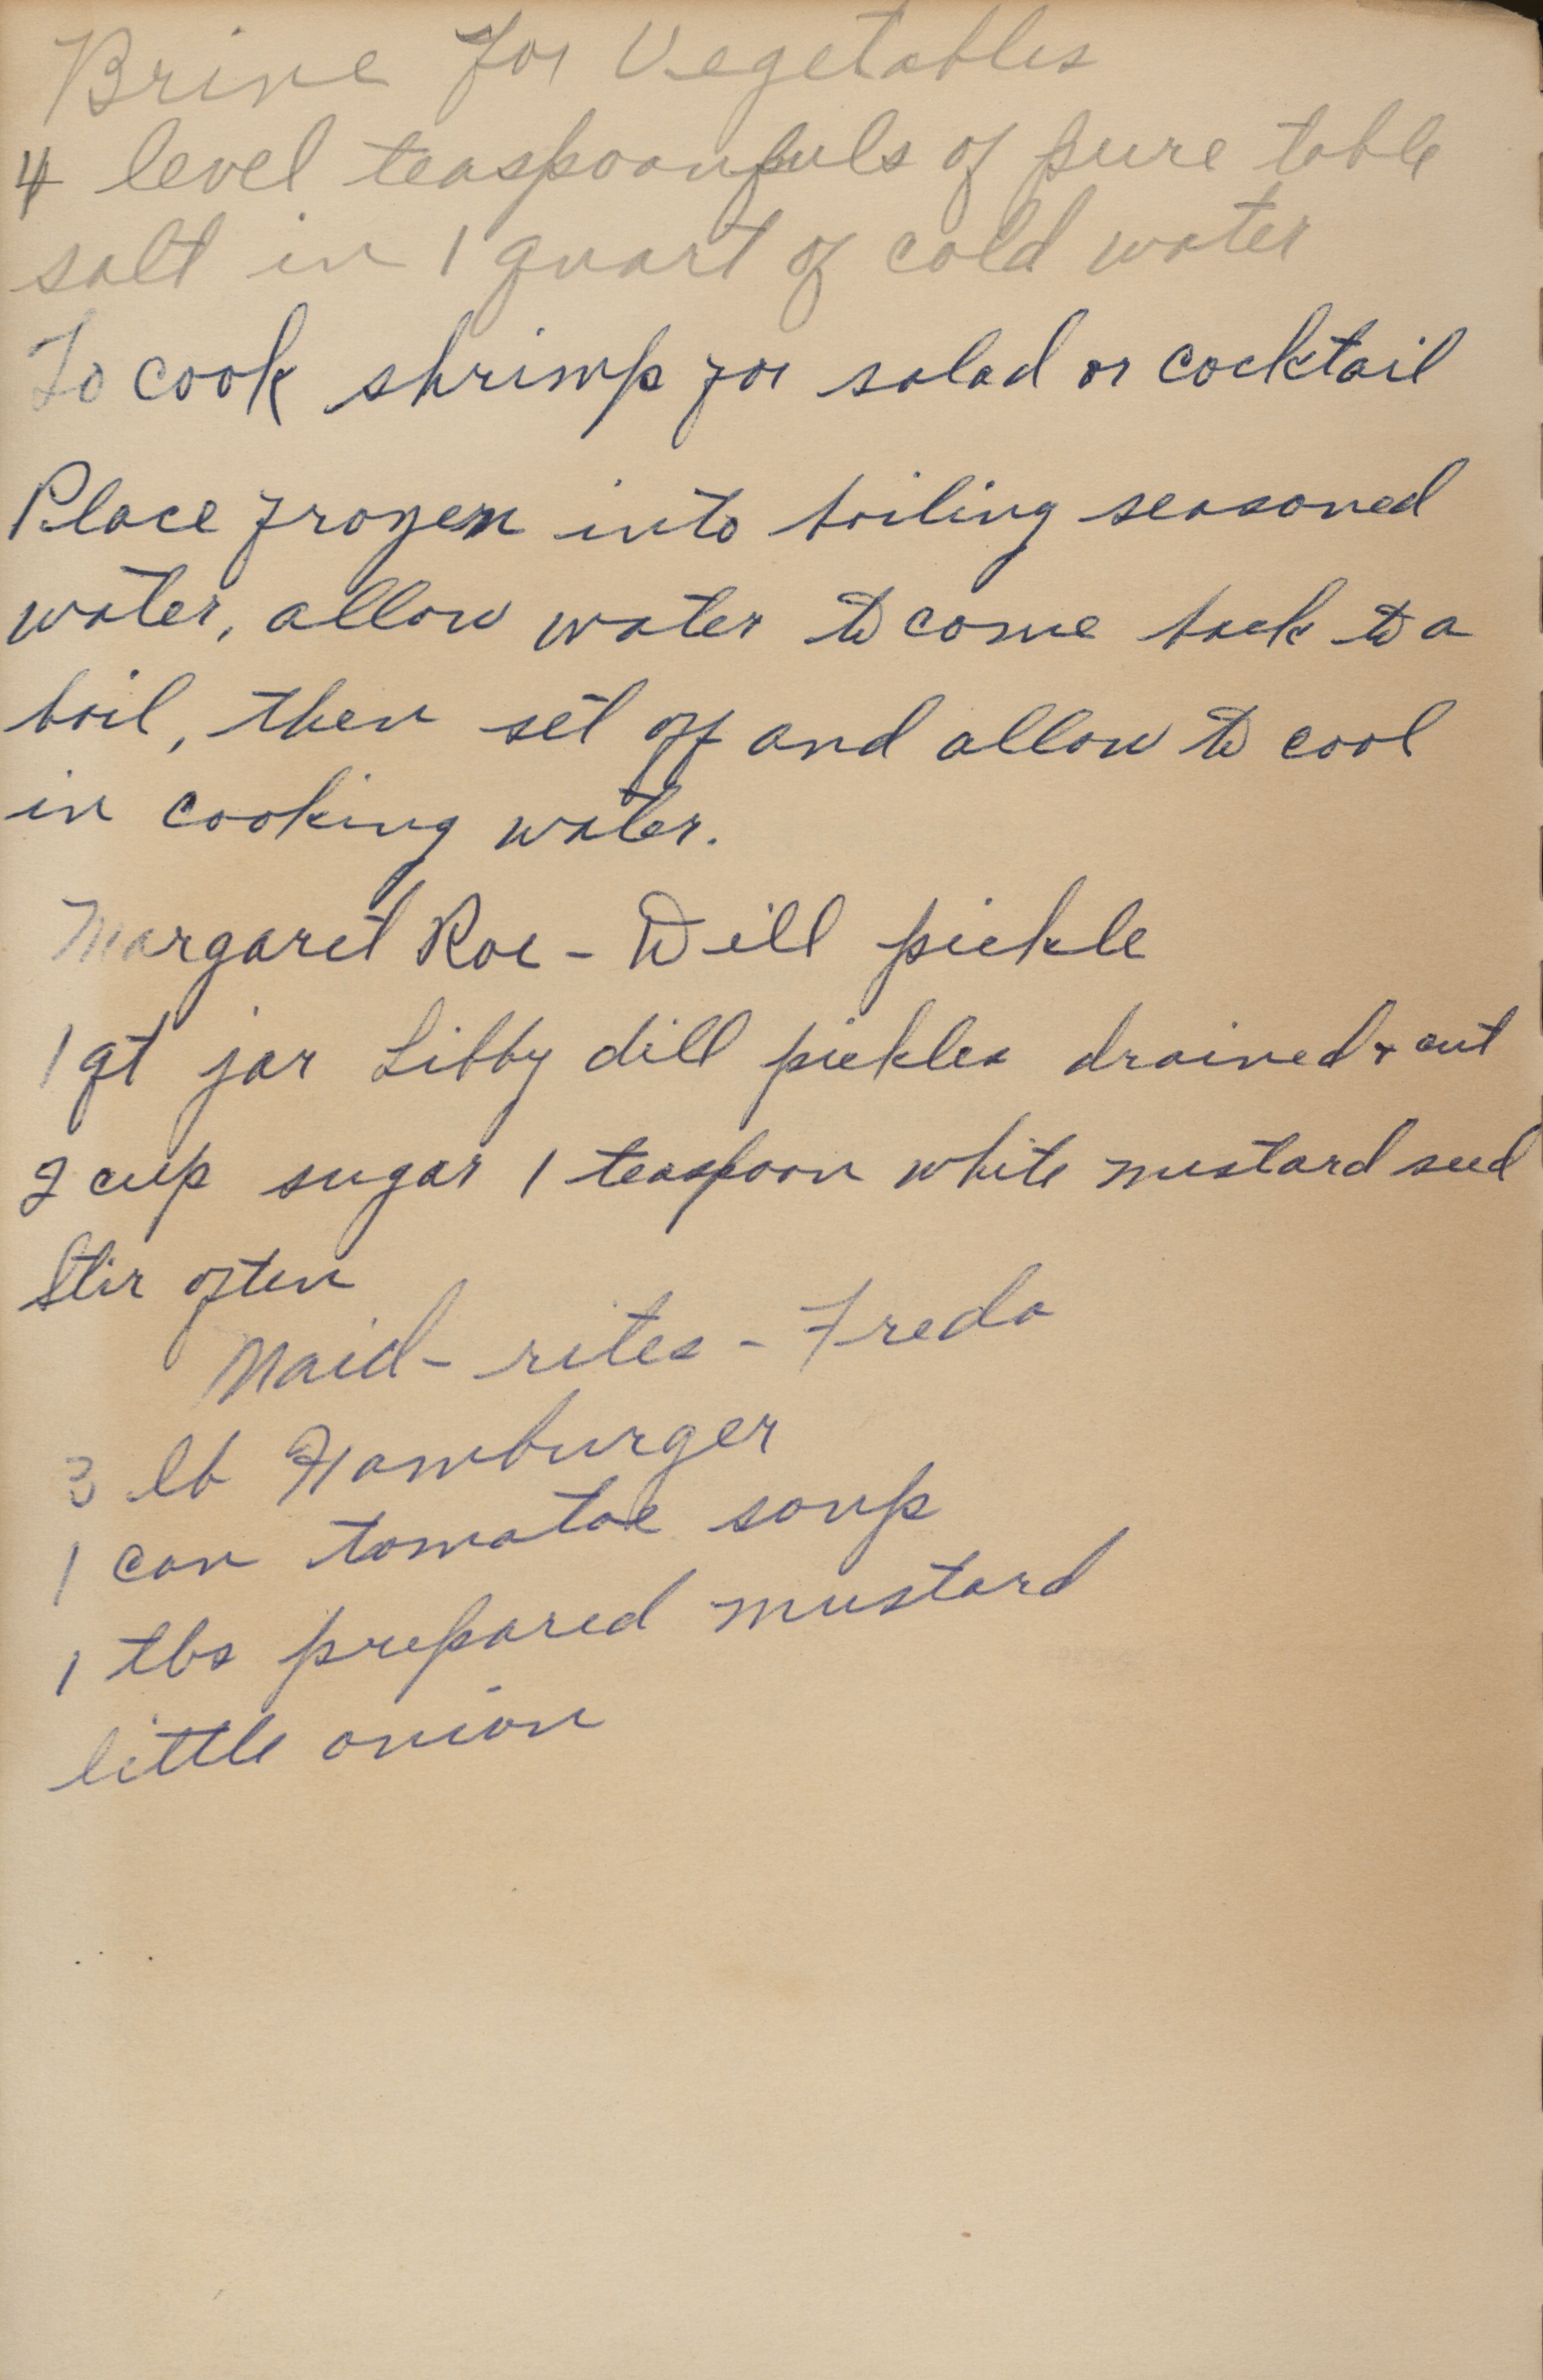 Brine for Vegetables
4 level teaspoonfuls of pure table
salt in 1 quart of cold water
To cook shrimp for salad or cocktail
Place frozen into boiling seasoned
water, allow water to come back to a
boil, then set off and allow to cool
in cooking water.
Margaret Roe - Dill pickle
1 qt jar Libby dill pickles drained + cut
2 cup sugar 1 teaspoon white mustard seed
Stir often
Maid-rites - Freda
3 lb Hamburger
1 can tomatoe soup
1 tbs prepared mustard
little onion